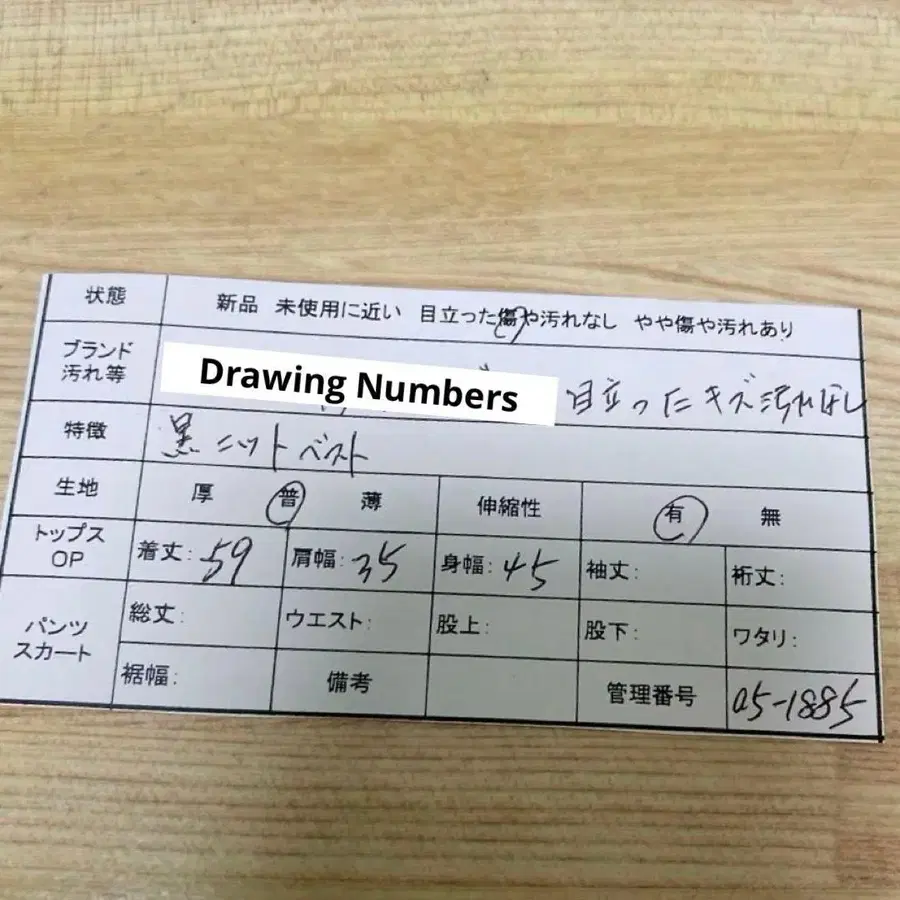 状態 新品 未使用に近い 目立った傷や汚れなし やや傷や汚れあり
ブランド
汚れ等 Drawing Numbers 目立ったキズ汚れなし
特徴 黒ニットベスト
生地 厚 普 薄 伸縮性 有 無
トップス
OP 着丈:59 肩幅:35 身幅:45 袖丈: 裄丈:
パンツ
スカート 総丈: ウエスト: 股上: 股下: ワタリ:
裾幅: 備考 管理番号 05-1885